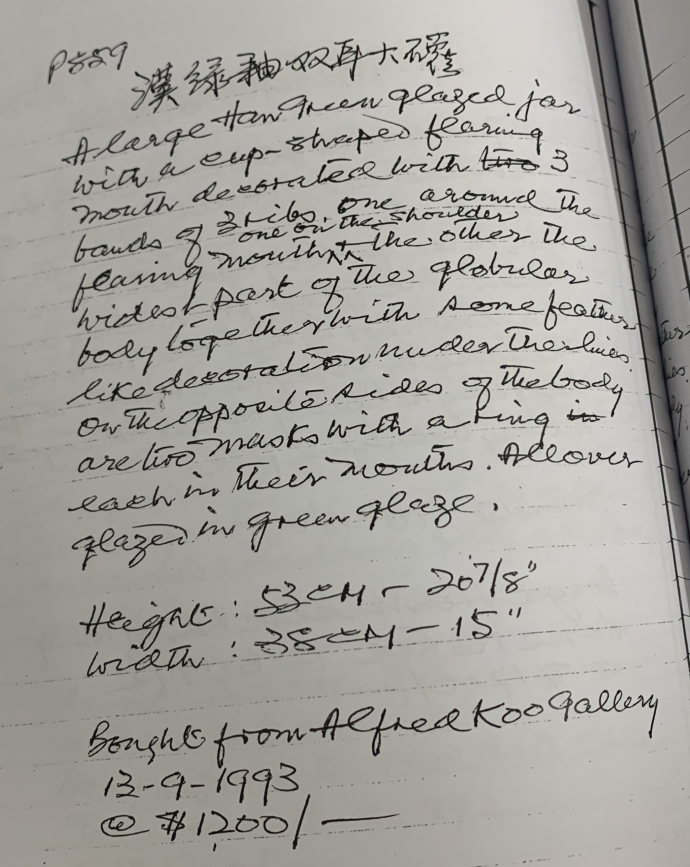 P559
漢緑釉双耳大罐
A large Han Green glazed jar
with a cup-shaped flaring
mouth decorated with two 3
bands of 3 ribs, one around the
one on the shoulder
flaring mouth & the other the
widest part of the globular
body together with some feather
like decoration under the lines.
On the opposite sides of the body
are two masks with a ring in
each in their mouths. All over
glazed in green glaze.
Height : 53 cm - 20 7/8"
width : 38 cm - 15"
Bought from Alfred Koo Gallery
13-9-1993
@ $1200/—